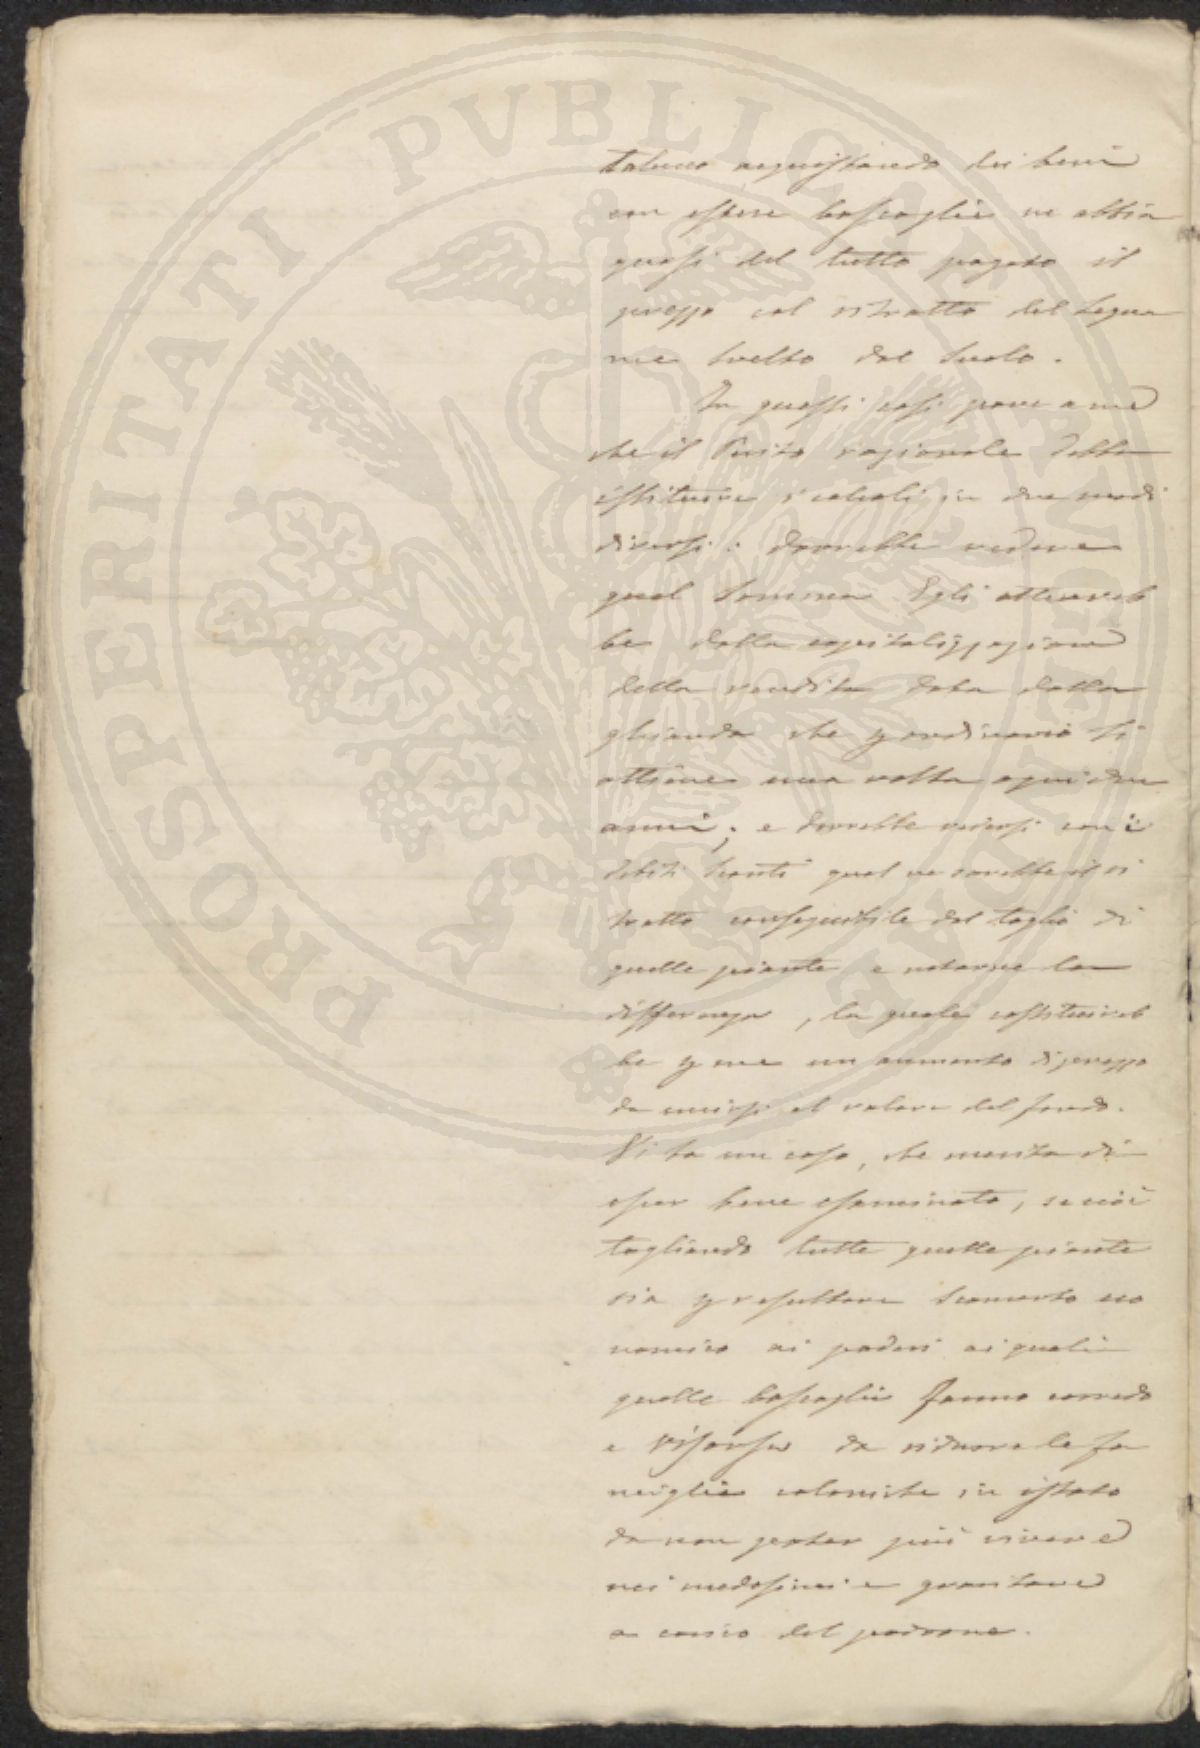 PROSPERITATI PVBLICAE AVGENDAE
taluno acquistando dei beni
con estese boscaglie ne abbia
quasi del tutto pagato il
prezzo col ritratto del legna
me svelto dal suolo.
In questi casi pare a me
che il Perito razionale debba
istituire i calcoli in due modi
diversi: dovrebbe vedere
qual somma Egli otterreb
be dalla capitalizzazione
della rendita data dalla
ghianda che p ordinario si
ottiene una volta ogni due
anni; e dovrebbe vedersi con i
debiti sconti qual ne sarebbe il ri
tratto conseguibile dal taglio di
quelle piante e notarne la
differenza, la quale costituireb
be p me un aumento di prezzo
da unirsi al valore del fondo.
Vi ha un caso, che merita di
esser bene esaminato, se cioè
tagliando tutte quelle piante
sia p resultare sconcerto eco
nomico ai poderi ai quali
quelle boscaglie fanno corredo
e risorsa da ridurre le fa
miglie coloniche in istato
da non poter più vivere
nei medesimi e gravitare
a carico del padrone.